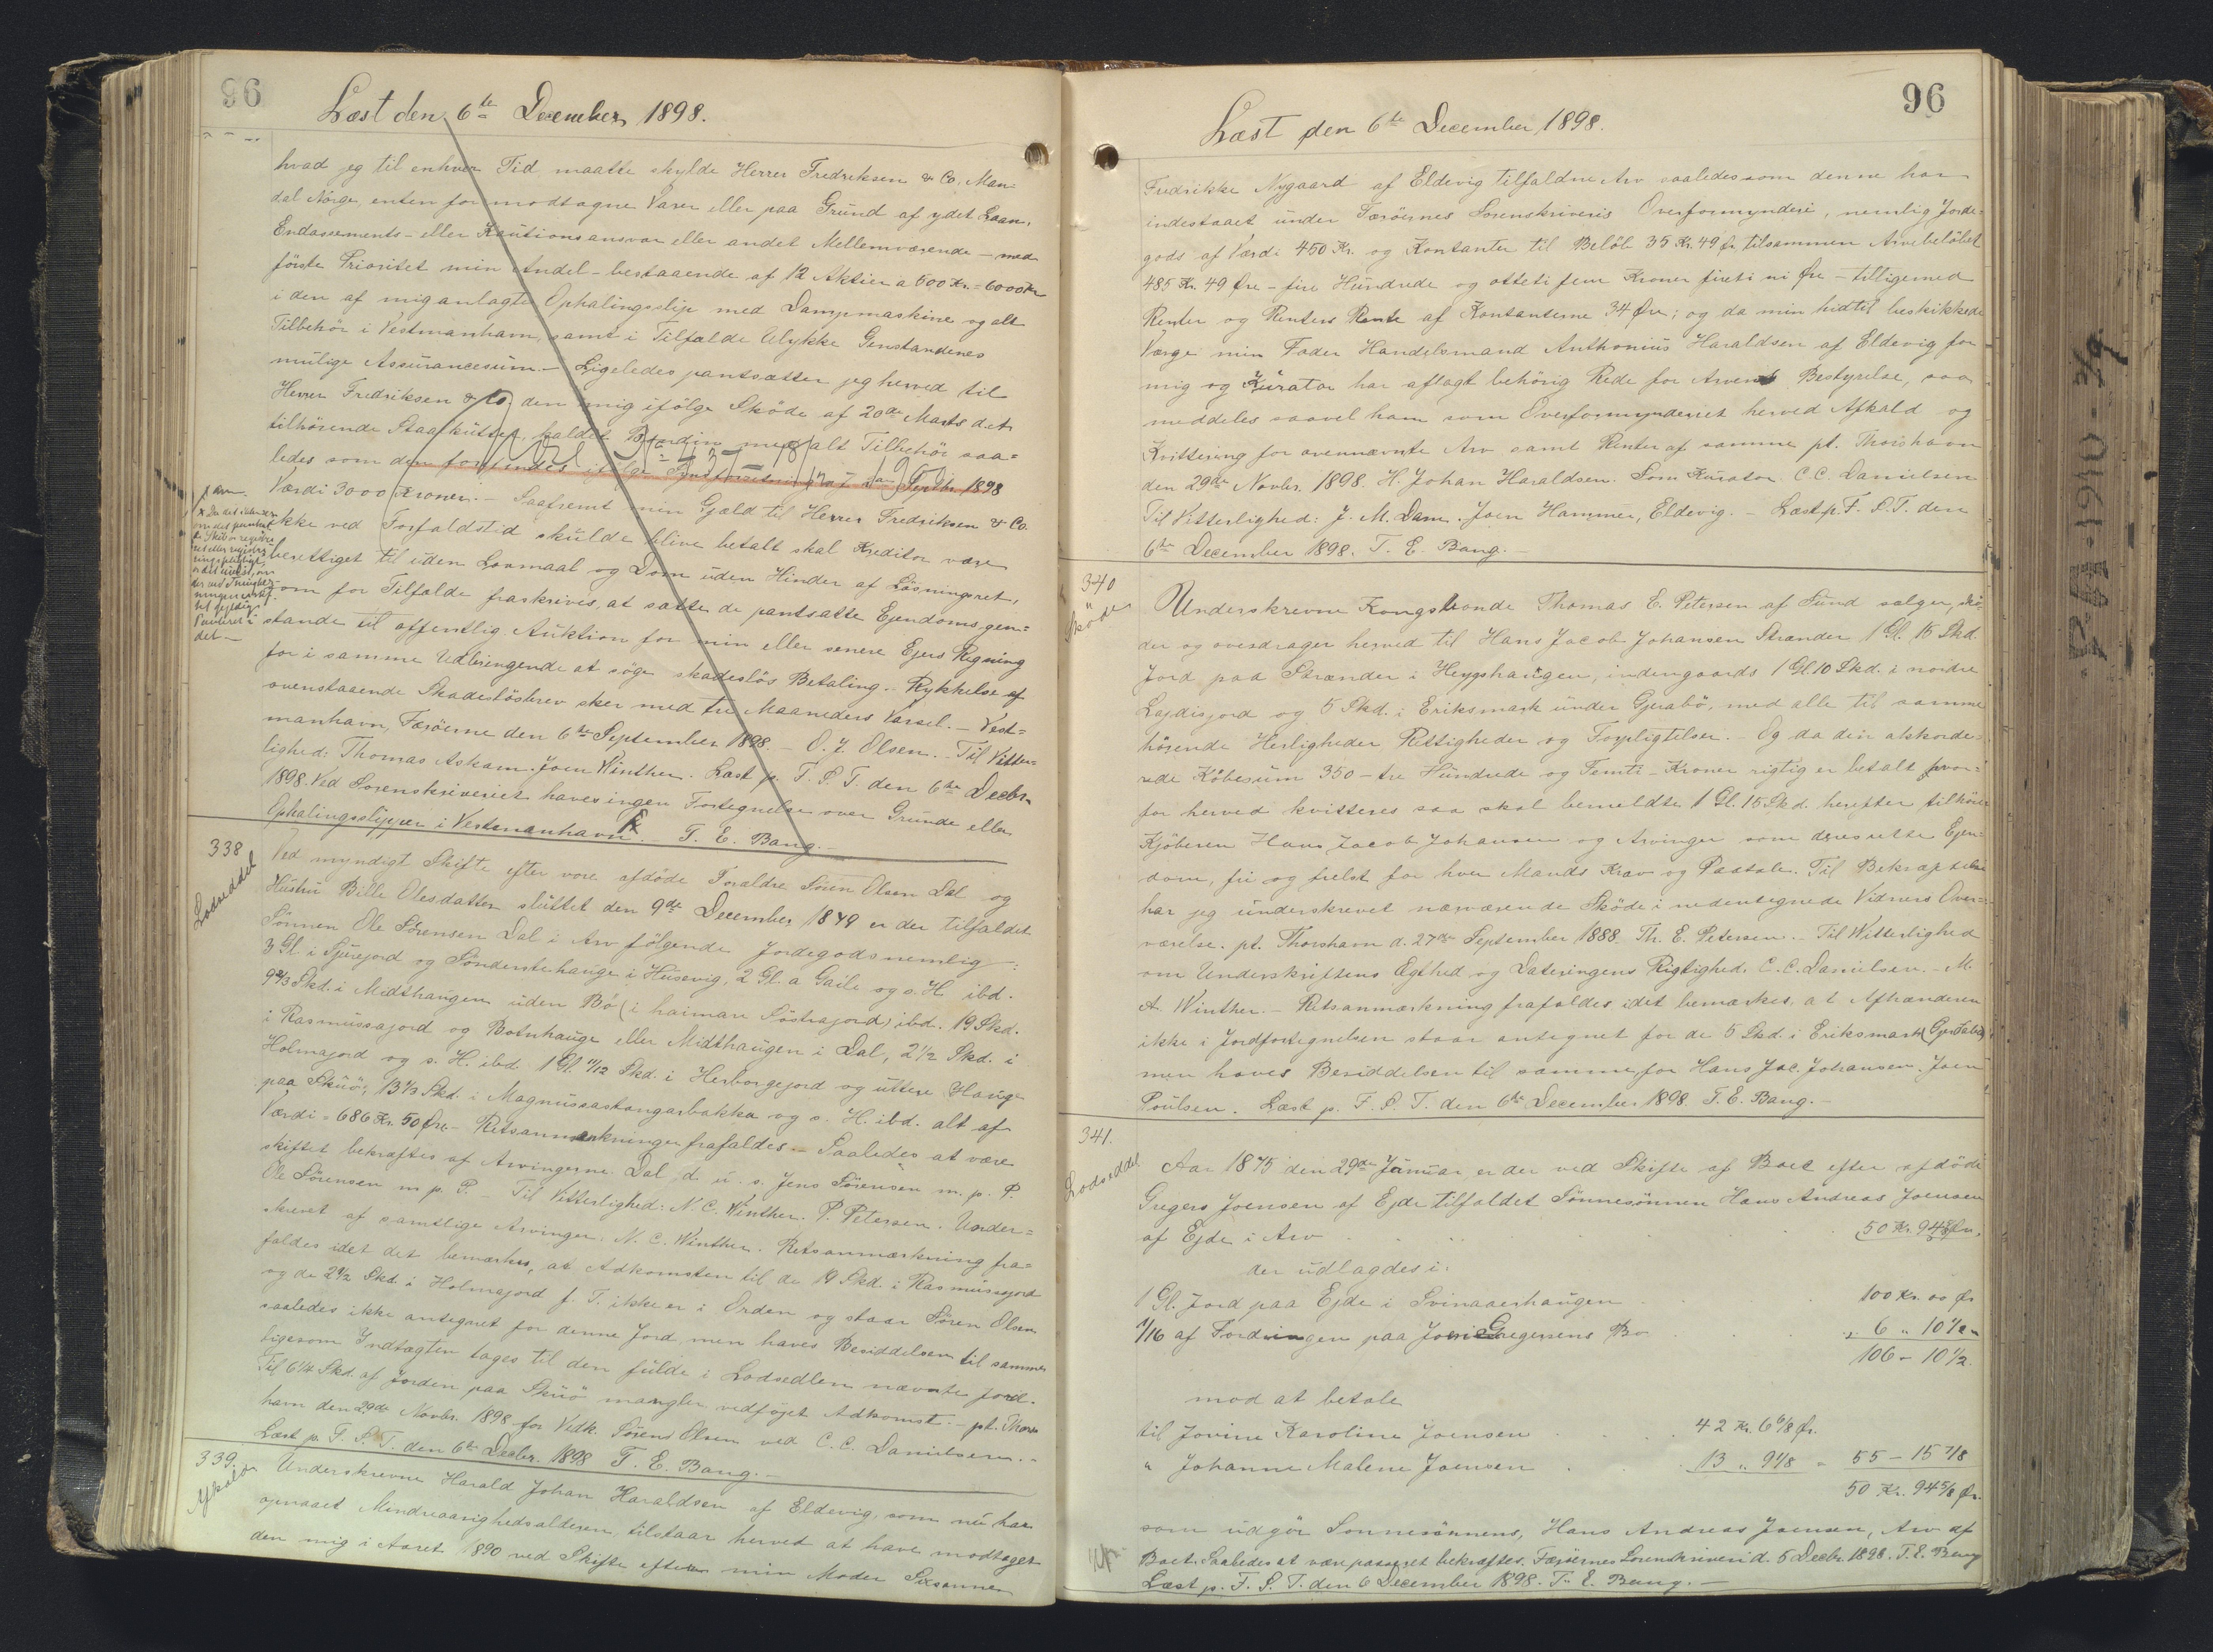 96
Læst den 6te December 1898.
hvad jeg til enhver Tid maatte skylde Herrer Fredriksen & Co, Man=
dal Norge, enten for modtagne Varer eller paa Grund af ydet Laan,
Endossements- eller Kautionsansvar eller andet Mellemværende – med
første Prioritet min Andel – bestaaende af 12 Aktier a 500 Kr. = 6000 Kr
i den af mig anlagte Ophalingsslip med Dampmaskine og alt
Tilbehör i Vestmanhavn, samt i Tilfælde Ulykke Genstandenes
mulige Assurancesum. – Ligeledes pantsætter jeg herved til
Herrer Fredriksen & Co. den mig ifölge Sköde af 20de Marts d.A.
tilhörende Slupkutter, kaldet med alt Tilbehör saa=
ledes som den forefindes ifölge Septbr. 1898
Værdi 3000 Kroner. – Saafremt min Gjæld til Herrer Fredriksen & Co.
ikke ved Forfaldstid skulde blive betalt skal Kreditor være
berettiget til uden Lovmaal og Dom uden Hinder af Lösningsret,
som for Tilfælde fraskrives, at sætte de pantsatte Ejendomsgen=
stande til offentlig Auktion for min eller senere Ejers Regning
for i samme Udbringende at söge skadeslös Betaling. – Rykkelse af
ovenstaaende Skadeslösbrev sker med tre Maaneders Varsel. – Vest=
manhavn, Færöerne den 6te September 1898. – O. J. Olsen. – Til Vitter=
lighed: Thomas Askam. Joen Winther. Læst p. F. S. T. den 6te Decbr.
1898. Ved Sorenskriveriet haves ingen Fortegnelse over Grunde eller
Ophalingsslipper i Vestmanhavn. T. E. Bang. –
338
Lodseddel
Ved myndigt Skifte efter vore afdöde Foraldre Sören Olsen Dal og
Hustru Bille Olesdatter sluttet den 9de December 1879 er der tilfaldet
Sönnen Ole Sörensen Dal i Arv fölgende Jordegods nemlig:
3 Gl. i Sjurejord og Söndentehauge i Husevig, 2 Gl. a Gaile og s. H. ibd.
9 2/3 Skd. i Midthaugen uden Bö (i haiman Söstrajord) ibd. 19 Skd.
i Rasmussajord og Botnhauge eller Midthaugen i Dal, 2 1/2 Skd. i
Holmajord og s. H. ibd. 1 Gl. 11/12 Skd. i Herborgejord og uttere Hauge
paa Skuö, 13 1/3 Skd. i Magnussastangarbakka og s. H. ibd. alt af
Værdi = 686 Kr. 50 Øre. – Retsanmærkningen frafaldes. – Saaledes at være
skiftet bekræftes af Arvingerne. Dal, d. u. s. Jens Sörensen m. p. P.
Ole Sörensen m. p. P. – Til Vitterlighed: N. C. Winther. P. Petersen. Under=
skrevet af samtlige Arvinger: N. C. Winther. Retsanmærkning fra=
faldes idet det bemærkes, at Adkomsten til de 19 Skd. i Rasmussajord
og de 2 1/2 Skd. i Holmajord f. T. ikke er i Orden og staar Sören Olsen
saaledes ikke antegnet for denne Jord, men haves Besiddelsen til samme
ligesom Indtægten tages til den fulde i Lodsedlen nævnte Jord.
Til 6 1/4 Skd. af Jorden paa Skuö mangler vedföjet Adkomst. – pt. Thors
havn den 29de Novbr. 1898 for Vedk. Sörens Olsen ved C. C. Danielsen. –
Læst p. F. S. T. den 6te Decbr. 1898 T. E. Bang. –
339.
Afkald
Underskrevne Harald Johan Haraldsen af Eldevig, som nu har
opnaaet Mindreaarighedsalderen, tilstaar herved at have modtaget
den mig i Aaret 1890 ved Skifte efter min Moder Sixsannen
96
Læst den 6te December 1898.
Fredrikke Nygaard af Eldevig tilfaldne Arv saaledes som denne har
indestaaet under Færöernes Sorenskriveris Overformynderi, nemlig Jorde=
gods af Værdi 450 Kr. og Kontanter til Belöb 35 Kr. 49 Ør. tilsammen Arvebelöbet
485 Kr. 49 Øre – fire Hundrede og otteti fem Kroner fireti ni Øre – tilligemed
Renter og Renters Rente af Kontanterne 34 Øre; og da min hidtil beskikkede
Værge min Fader Handelsmand Anthonius Haraldsen af Eldevig for
mig og Kurator har aflagt behörig Rede for Arvens Bestyrelse, saa
meddeles saavel ham som Overformynderiet herved Afkald og
Kvittering for ovennævnte Arv samt Renter af samme pt. Thorshavn
den 29de Novbr. 1898. H. Johan Haraldsen. Som Kurator C. C. Danielsen
Til Vitterlighed: J. M. Dam. Joen Hammer, Eldevig. – Læst p. F. S. T. den
6te December 1898. T. E. Bang. –
340
Sköde
Underskrevne Kongsbonde Thomas E. Petersen af Sund sælger, skö-
der og overdrager herved til Hans Jacob Johansen Strænder 1 Gl. 15 Skd.
Jord paa Strænder i Heygshaugen, indengaards 1 Gl. 10 Skd. i nordre
Lajdisjord og 5 Skd. i Eriksmark under Gjerabö, med alle til samme
hörende Herligheder Rettigheder og Forpligtelser. – Og da den akkorde=
rede Köbesum 350 – tre Hundrede og Femti – Kroner rigtig er betalt hvor=
for herved kvitteres saa skal bemeldte 1 Gl. 15 Skd. herefter tilhöre
Kjöberen Hans Jacob Johansen og Arvinger som deres rette Ejen=
dom, fri og frelst for hver Mands Krav og Paatale. Til Bekræftelse
har jeg underskrevet nærværende Sköde i nedentegnede Vidners Over=
værelse. pt. Thorshavn d. 27de September 1888. Th. E. Petersen. – Til Witterlighed
om Underskriftens Ægthed og Dateringens Rigtighed. C. C. Danielsen. – M.
A. Winther. – Retsanmærkning frafaldes idet bemærkes, at Afhænderen
ikke i Jordfortegnelsen staar antegnet for de 5 Skd. i Eriksmark (Gjerabö)
men haves Besiddelsen til samme for Hans Jac. Johansen. Joen
Poulsen. Læst p. F. S. T. den 6te December 1898. T. E. Bang. –
341.
Lodseddel
Aar 1875 den 29de Januar er der ved Skifte af Boet efter afdöde
Gregers Joensen af Ejde tilfaldet Sönnesönnen Hans Andreas Joensen
af Ejde i Arv . . . . 50 Kr. 94 5/8 Ør.
der udlagdes i:
1 Gl. Jord paa Ejde i Svinaaerhaugen 100 Kr. 00 Ør
1/16 af Fordringen paa Joen Gregersens Bo 6 " 10 1/2 "
106 – 10 1/2.
mod at betale
til Jovine Karoline Joensen 42 Kr. 6 6/8 Ør.
" Johanne Malene Joensen 13 " 9 1/8 = 55 – 15 7/8
50 Kr. 94 5/8 Ør.
som udgör Sonnesönnens, Hans Andreas Joensen, Arv af
Boet. Saaledes at være passeret bekræftes. Færöernes Sorenskriveri d. 5 Decbr. 1898. T. E. Bang
Læst p. F. S. T. den 6 December 1898. T. E. Bang. –